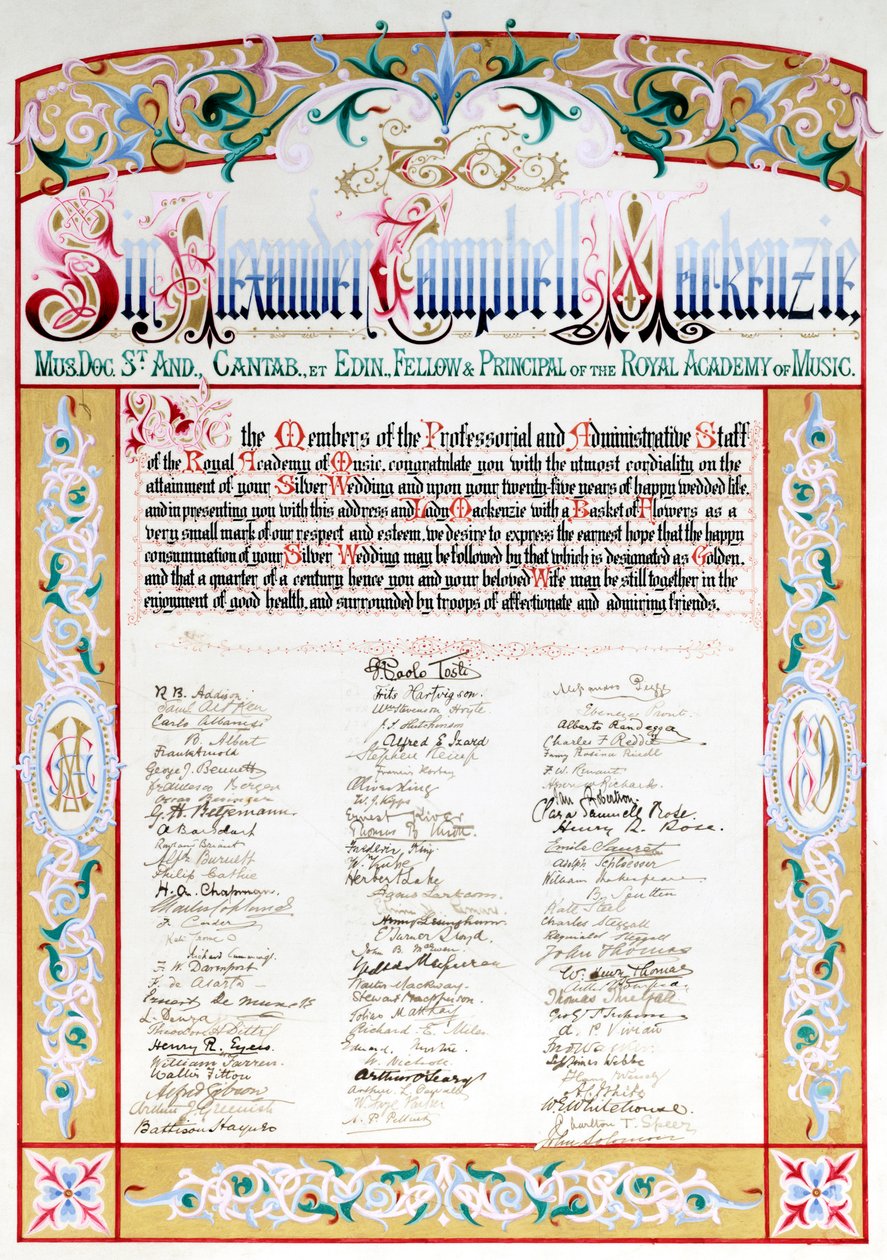 To
Sir Alexander Campbell Mackenzie,
Mus. Doc. St. And., Cantab., et Edin., Fellow & Principal of the Royal Academy of Music.
We the Members of the Professorial and Administrative Staff
of the Royal Academy of Music, congratulate you with the utmost cordiality on the
attainment of your Silver Wedding and upon your twenty-five years of happy wedded life,
and in presenting you with this address and Lady Mackenzie with a Basket of Flowers as a
very small mark of our respect and esteem, we desire to express the earnest hope that the happy
consummation of your Silver Wedding may be followed by that which is designated as Golden.
and that a quarter of a century hence you and your beloved Wife may be still together in the
enjoyment of good health, and surrounded by troops of affectionate and admiring friends.
R B. Addison
Carlo Albanesi
B. Albert
Frank Arnold
George J. Bennett
G. H. Betjemann
Alfr. Burnett
Philip Cathie
H. A. Chapman
F. Corder
Richard Cummings
F. W. Davenport
F. de Asarta
L. Denza
Henry R. Eyers
William Farren
Walter Fitton
Alfred Gibson
Arthur J. Greenish
Battison Haynes
Paolo Tosti
Frits Hartvigson.
Wm Stevenson Hoyte
J. F. Hutchinson
Alfred E Izard
Stephen Kemp
Oliver King
W. J. Kipps
Fredk King
W. Kuhe
Herbert Lake
Agnes Larkcom
E Turner Lloyd.
John B. McEwen
Walter Mackway
Stewart Macpherson.
Tobias Matthay
Richard E. Miles
W. Nicholl
Arthur O'Leary
Ebenezer Prout
Alberto Randegger
Charles F Reddie
F. W. Renaut
Clara Samuell Rose.
Henry R. Rose.
Emile Sauret
Adolf Schloesser
William Shakespeare
Walt Steel
Charles Steggall
Reginald Steggall
John Thomas
W. Henry Thomas
Thomas Threlfall
A. P. Vivian
Septimus Webbe
W E Whitehouse.
Charlton T. Speer
John Solomon